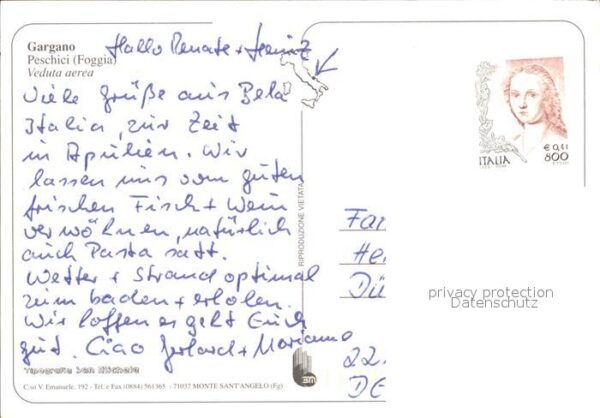 Gargano
Peschici (Foggia)
Veduta aerea
Hallo Renate + Heinz
Viele Grüße aus Bela
Italia, zur Zeit
in Apulien. Wir
lassen uns vom guten
frischen Fisch + Wein
verwöhnen, natürlich
auch Pasta satt.
Wetter + Strand optimal
zum baden + erholen.
Wir hoffen es geht Euch
gut. Ciao Gerhard + Marianne
Tipografia San Michele
C.so V. Emanuele, 192 - Tel. e Fax (0884) 561365 - 71037 MONTE SANT'ANGELO (Fg)
RIPRODUZIONE VIETATA
3M
ITALIA
€ 0,41
800
Fa
He
Dü
22.
DE
privacy protection
Datenschutz